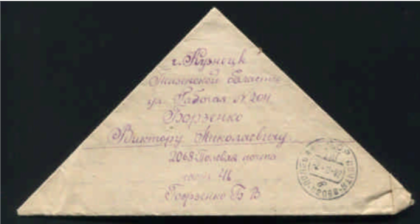 г. Кузнецк
Пензенской области
ул. Рабочая № 201
Борзенко
Виктору Николаевичу
2068 Полевая почта
часть
Борзенко Б В